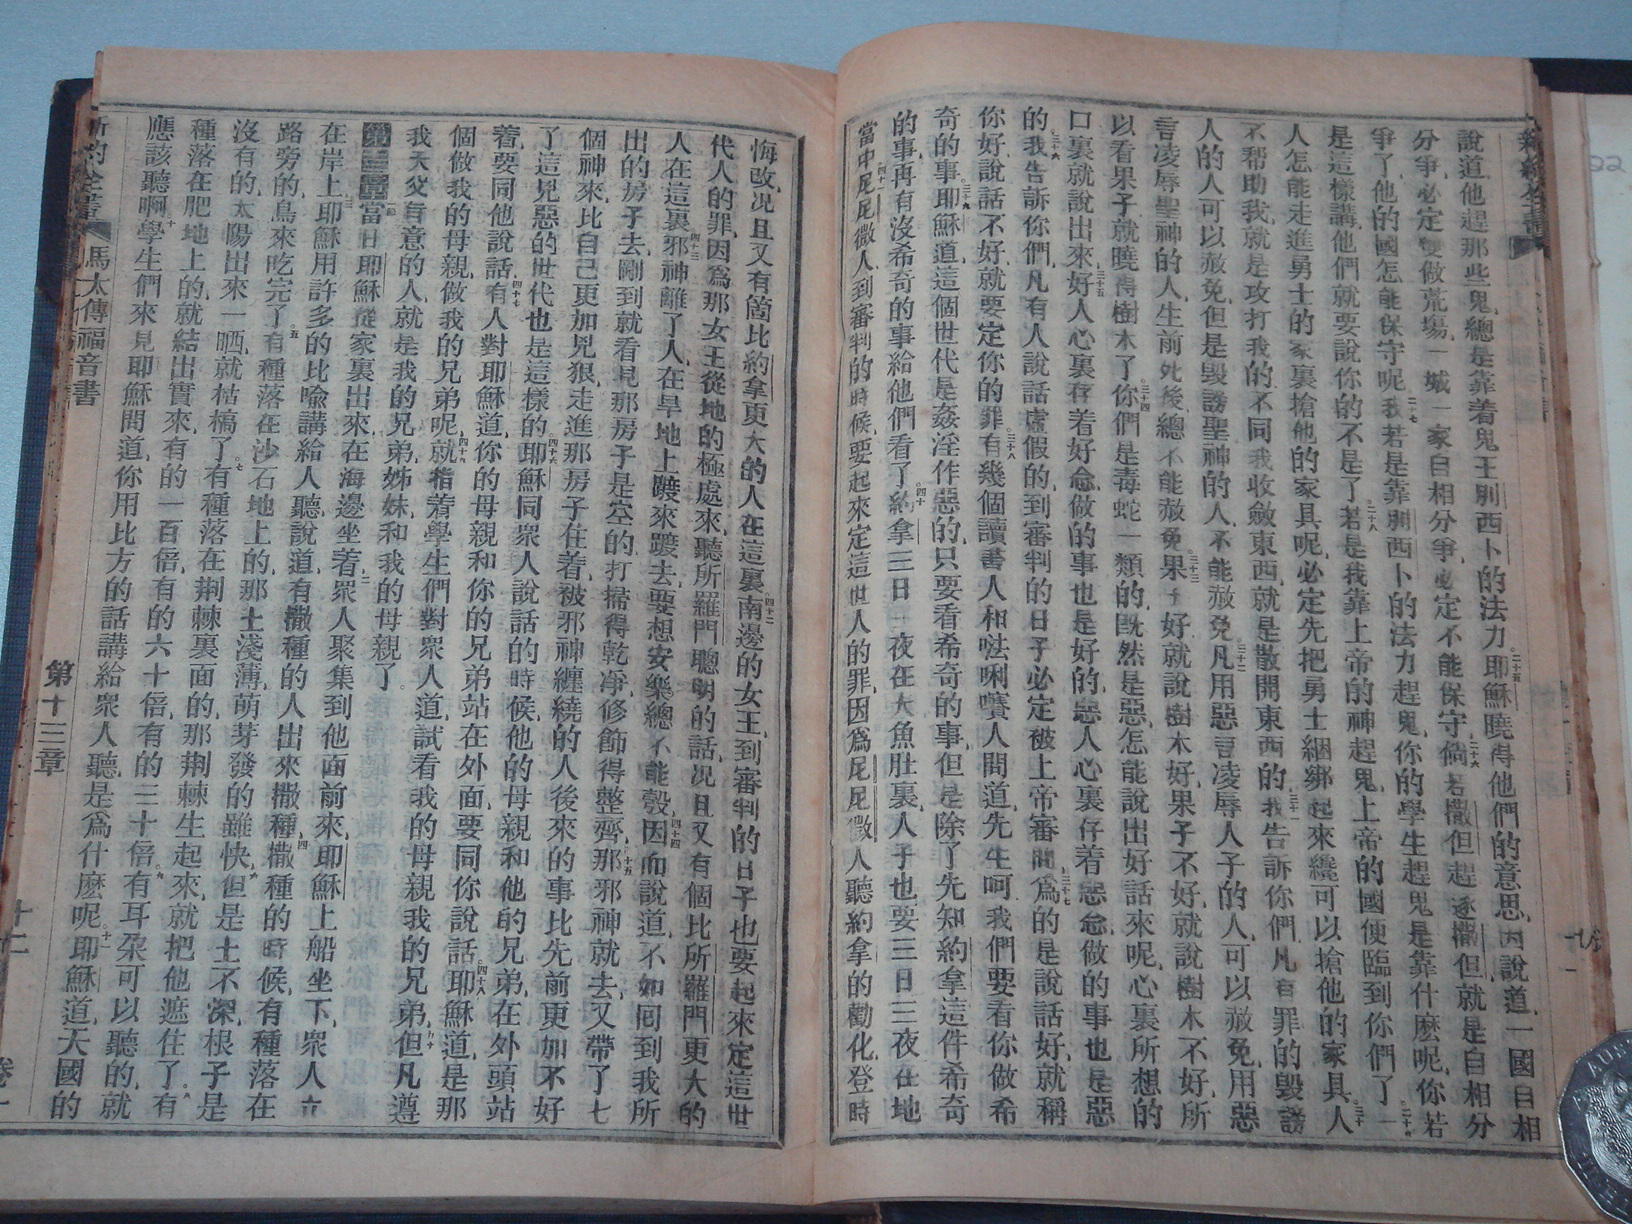 說道他趕那些鬼總是靠着鬼王別西卜的法力二十五耶穌曉得他們的意思因說道一國自相
分爭必定要做荒場一城一家自相分爭必定不能保守二十六倘若撒但趕逐撒但就是自相分
爭了他的國怎能保守呢二十七我若是靠別西卜的法力趕鬼你的學生趕鬼是靠什麽呢你若
是這樣講他們就要說你的不是了二十八若是我靠上帝的神趕鬼上帝的國便臨到你們了二十九一
人怎能走進勇士的家裏搶他的家具呢必定先把勇士綑綁起來纔可以搶他的家具三十人
不帮助我就是攻打我的不同我收斂東西就是散開東西的三十一我告訴你們凡有罪的毀謗
人的人可以赦免但是毀謗聖神的人不能赦免三十二凡用惡言凌辱人子的人可以赦免用惡
言凌辱聖神的人生前死後總不能赦免三十三果子好就說樹木好果子不好就說樹木不好所
以看果子就曉得樹木了三十四你們是毒蛇一類的旣然是惡怎能說出好話來呢心裏所想的
口裏就說出來三十五好人心裏存着好念做的事也是好的惡人心裏存着惡念做的事也是惡
的三十六我告訴你們凡有人說話虛假的到審判的日子必定被上帝審問三十七爲的是說話好就稱
你好說話不好就要定你的罪三十八有幾個讀書人和𠵽唎嚽人問道先生呵我們要看你做希
奇的事三十九耶穌道這個世代是姦淫作惡的只要看希奇的事但是除了先知約拿這件希奇
的事再有沒希奇的事給他們看了四十約拿三日三夜在大魚肚裏人子也要三日三夜在地
當中四十一尼尼微人到審判的時候要起來定這世人的罪因爲尼尼微人聽約拿的勸化登時
悔改况且又有箇比約拿更大的人在這裏四十二南邊的女王到審判的日子也要起來定這世
代人的罪因爲那女王從地的極處來聽所羅門聰明的話况且又有個比所羅門更大的
人在這裏四十三邪神離了人在旱地上踱來踱去要想安樂總不能彀四十四因而說道不如囘到我所
出的房子去剛到就看見那房子是空的打掃得乾凈修飾得整齊四十五那邪神就去又帶了七
個神來比自己更加兇狠走進那房子住着被邪神纏繞的人後來的事比先前更加不好
了這兇惡的世代也是這樣的四十六耶穌同衆人說話的時候他的母親和他的兄弟在外頭站
着要同他說話四十七有人對耶穌道你的母親和你的兄弟站在外面要同你說話四十八耶穌道是那
個做我的母親做我的兄弟呢四十九就指着學生們對衆人道試看我的母親我的兄弟五十但凡遵
我天父旨意的人就是我的兄弟姊妹和我的母親了
第十三章一當日耶穌從家裏出來在海邊坐着二衆人聚集到他面前來耶穌上船坐下衆人立
在岸上三耶穌用許多的比喻講給人聽說道有撒種的人出來撒種四撒種的時候有種落在
路旁的鳥來吃完了五有種落在沙石地上的那土淺薄萌芽發的雖快六但是土不深根子是
沒有的太陽出來一晒就枯槁了七有種落在荆棘裏面的那荆棘生起來就把他遮住了八有
種落在肥地上的就結出實來有的一百倍有的六十倍有的三十倍九有耳朶可以聽的就
應該聽啊十學生們來見耶穌問道你用比方的話講給衆人聽是爲什麽呢十一耶穌道天國的
新約全書 馬太傳福音書 第十三章 十二 卷一